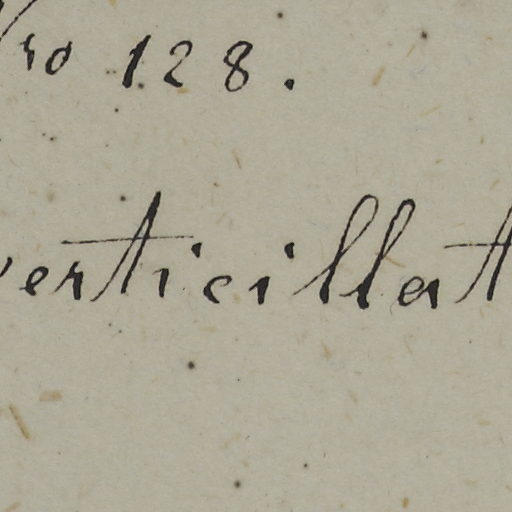 Nro 128.
verticillat